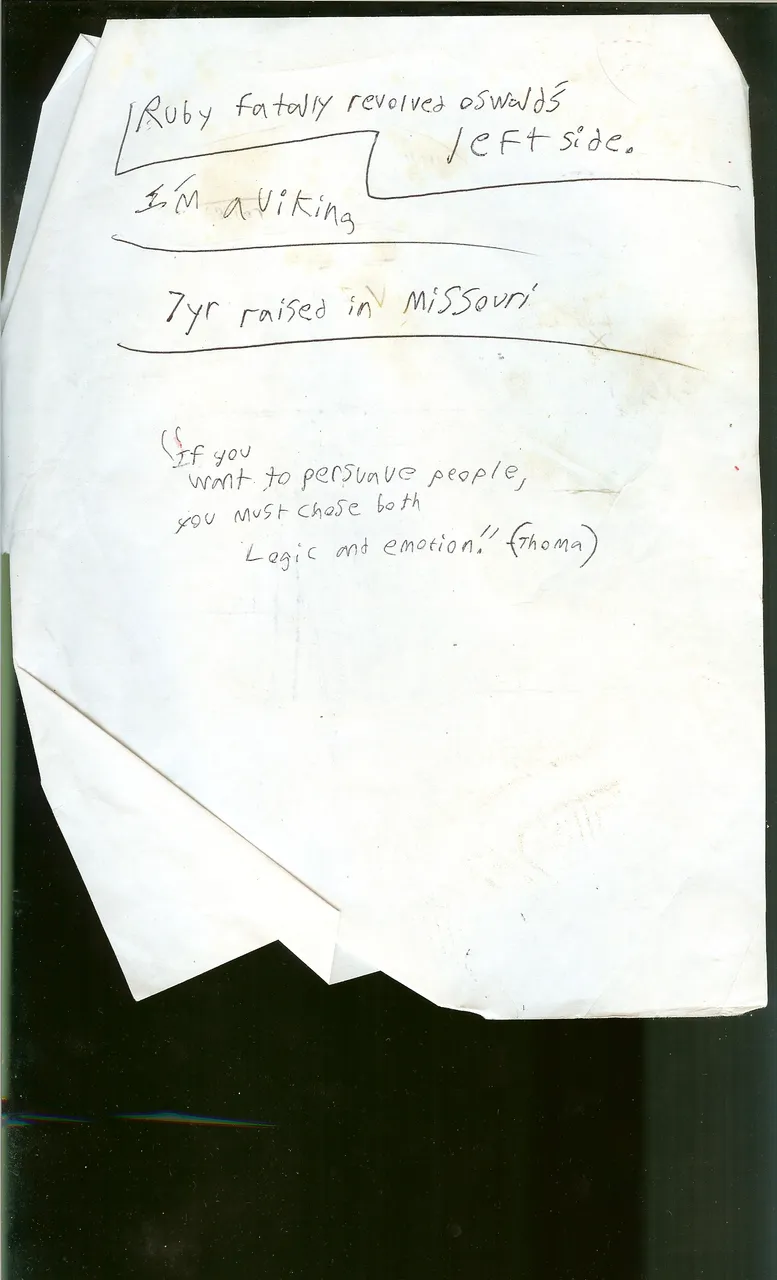 Ruby fatally revolved oswald's
left side.
I'm a viking
7yr raised in Missouri
"If you
want to persuave people,
you must chose both
Logic and emotion." (Thoma)